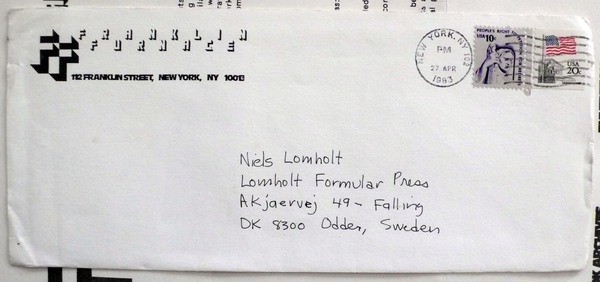 FRANKLIN
FURNACE
112 FRANKLIN STREET, NEW YORK, NY 10013
NEW YORK, NY 102
PM
27 APR
1983
PEOPLE'S RIGHT
USA 10c
USA
20c
Niels Lomholt
Lomholt Formular Press
Akjaervej 49 - Falling
DK 8300 Odden, Sweden